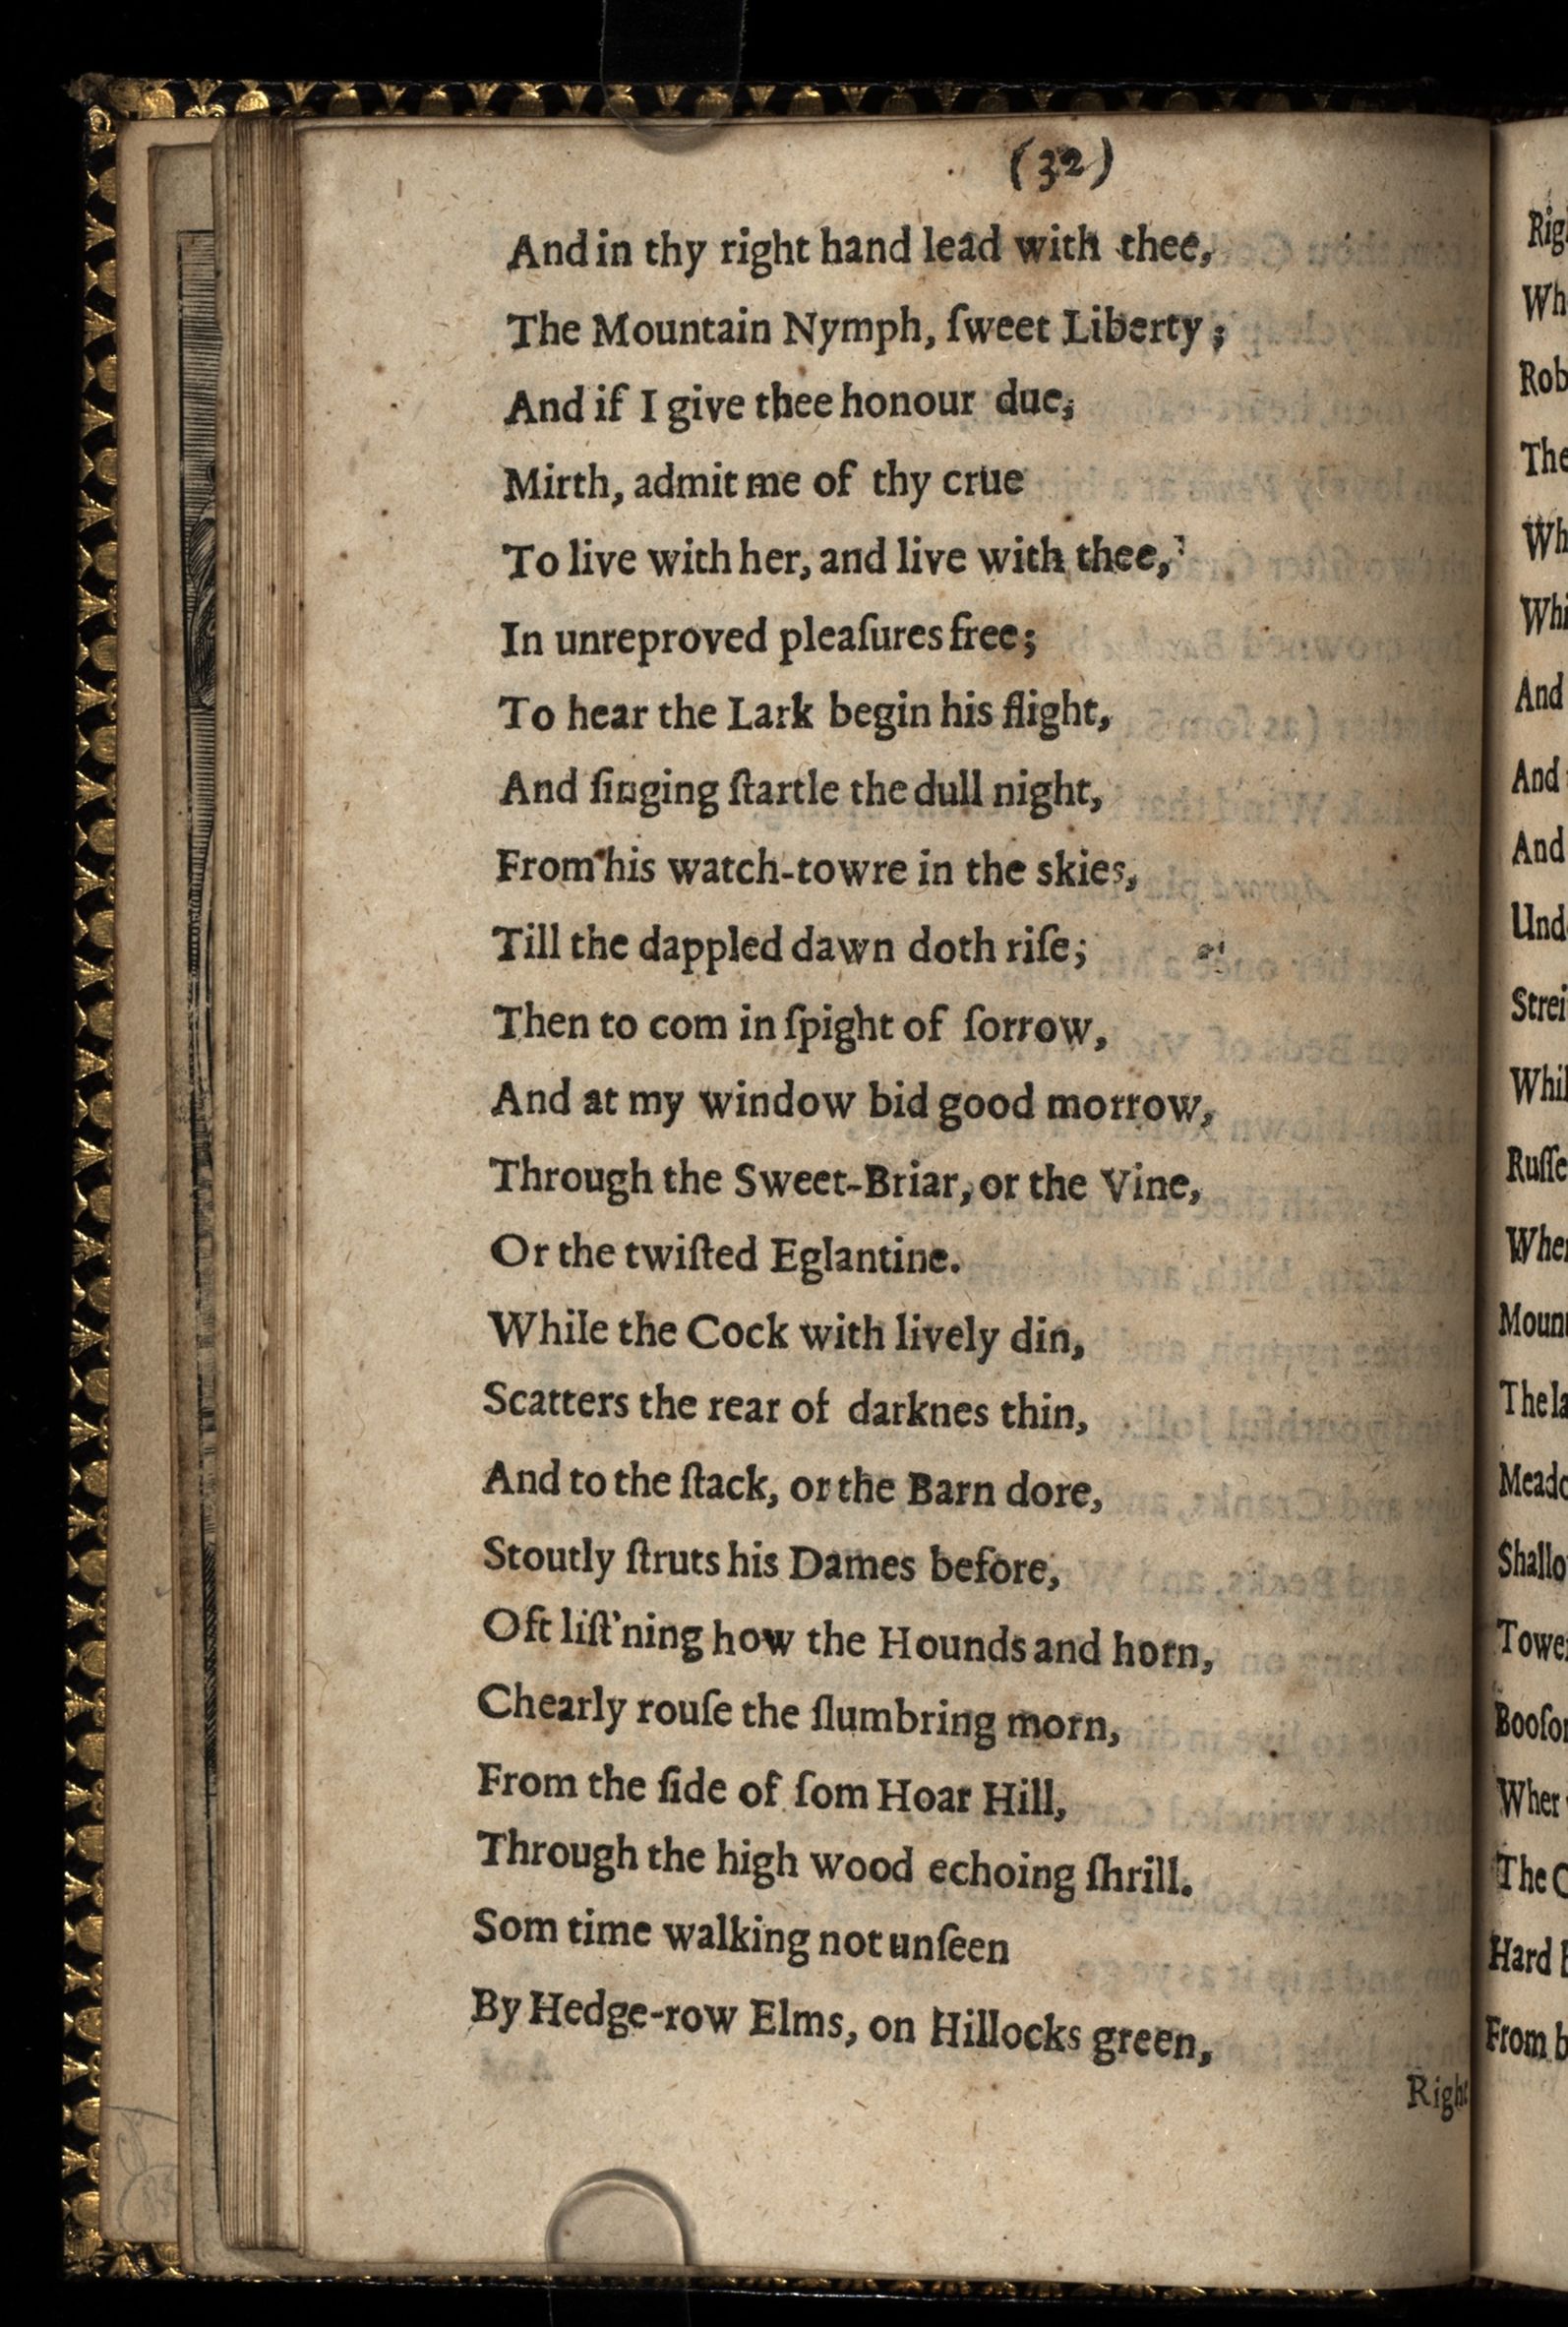 (32)
And in thy right hand lead with thee,
The Mountain Nymph, ſweet Liberty;
And if I give thee honour due,
Mirth, admit me of thy crue
To live with her, and live with thee,
In unreproved pleaſures free;
To hear the Lark begin his flight,
And ſinging ſtartle the dull night,
From his watch-towre in the skies,
Till the dappled dawn doth riſe;
Then to com in ſpight of ſorrow,
And at my window bid good morrow,
Through the Sweet-Briar, or the Vine,
Or the twiſted Eglantine.
While the Cock with lively din,
Scatters the rear of darknes thin,
And to the ſtack, or the Barn dore,
Stoutly ſtruts his Dames before,
Oft liſt'ning how the Hounds and horn,
Chearly rouſe the ſlumbring morn,
From the ſide of ſom Hoar Hill,
Through the high wood echoing ſhrill.
Som time walking not unſeen
By Hedge-row Elms, on Hillocks green,
Right
Rig
Wh
Rob
The
Wh
Whi
And
And
And
Und
Strei
Whil
Ruſſe
Wher
Moun
The la
Meado
Shallo
Tower
Booſo
Wher
The C
Hard b
From b